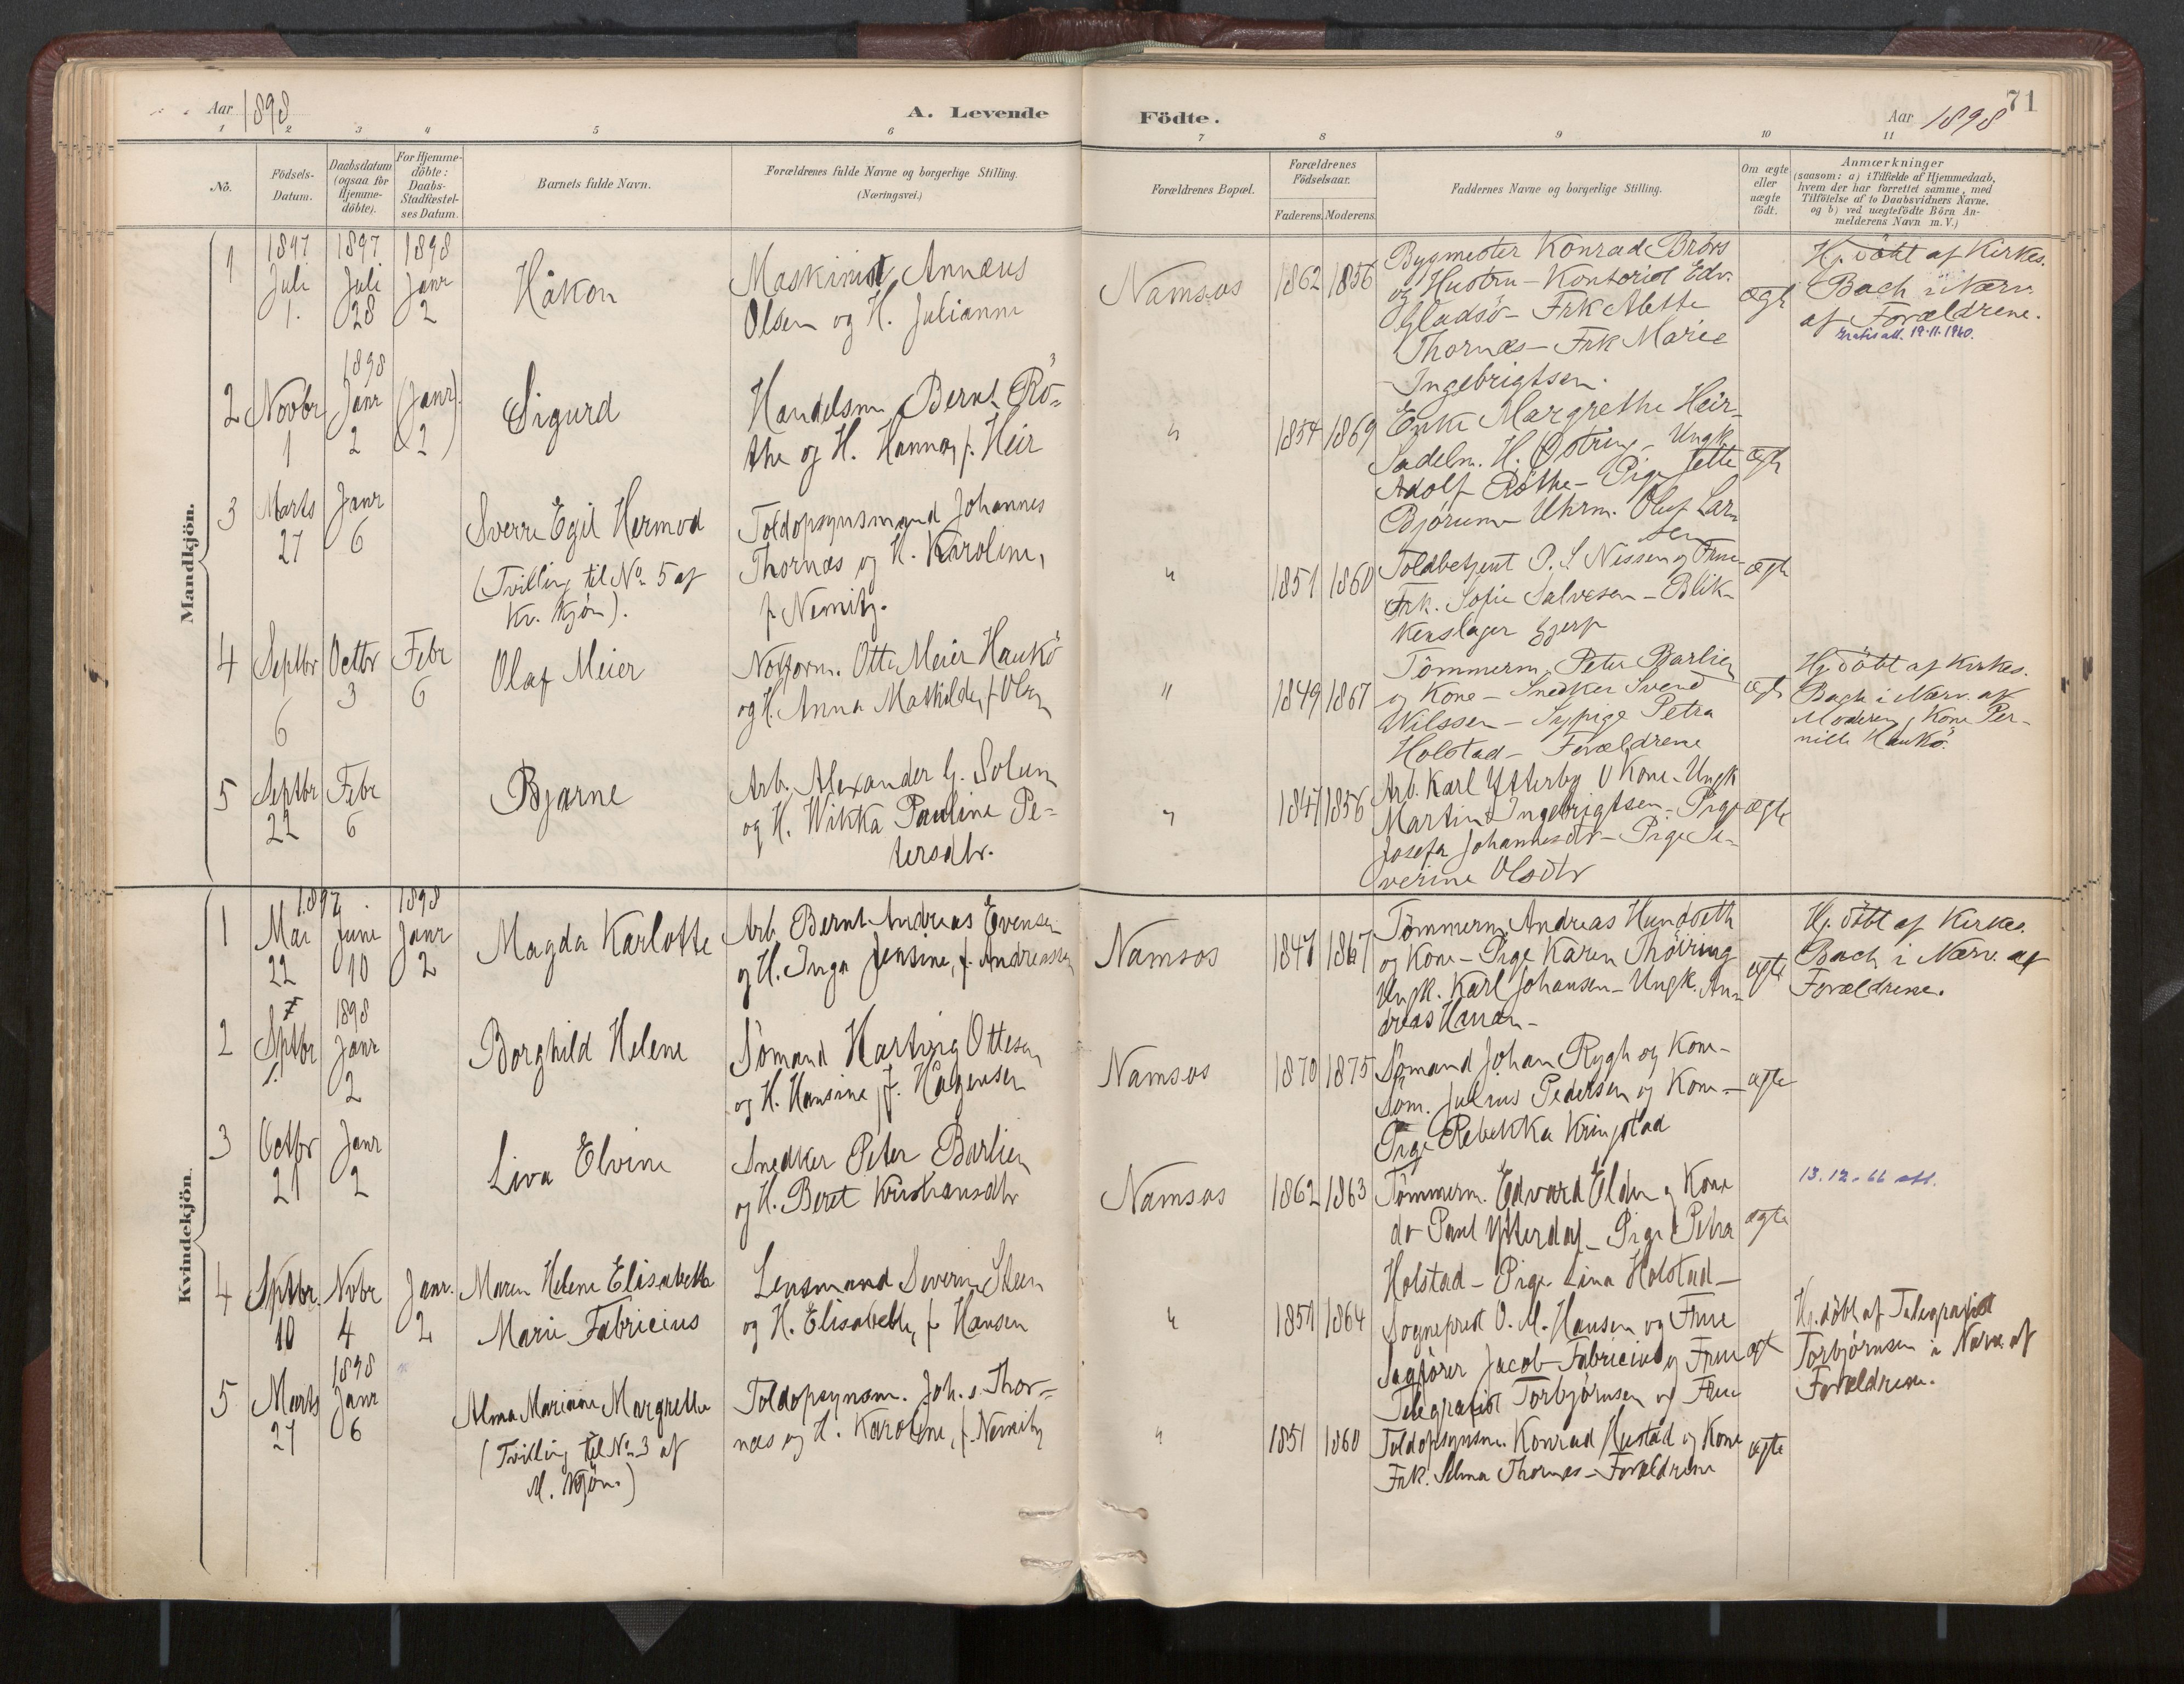 Aar 1898
A. Levende
Födte.
Aar 1898
71
1 2 3 4 5 6 7 8 9 10 11
No.
Födsels-
Datum.
Daabsdatum
(ogsaa för
Hjemme-
döbte).
For Hjemme-
döbte:
Daabs-
Stadfæstel-
ses Datum.
Barnets fulde Navn.
Forældrenes fulde Navne og borgerlige Stilling.
(Næringsvei.)
Forældrenes Bopæl.
Forældrenes
Födselsaar.
Faderens. Moderens.
Faddernes Navne og borgerlige Stilling.
Om ægte
eller
uægte
født.
Anmærkninger
(saasom: a) i Tilfælde af Hjemmedaab,
hvem der har forrettet samme, med
Tilföielse af to Daabsvidners Navne.
og b) ved uægtefödte Börn An-
melderens Navn m.V.)
Mandkjön.
1
1897
Juli
1.
1897
Juli
28
1898
Janr
2
Håkon
Maskinist Annæus
Olsen og H. Julianne
Namsos
1862 1856
Bygmester Konrad Brörs
og Hustru - Kontorist Edv.
Gladsö - Frk Alette
Thornæs - Frk Marie
Ingebrigtsen.
ægte
Hj. döbt af Kirkes.
Bach i Nærv.
af Forældrene.
19-11-1960.
2
Novbr
1
1898
Janr
2
(Janr).
(2)
Sigurd
Handelsm. Bernt Rö-
the og H. Hanna, f. Heir
"
1854 1869
Enke Margrethe Heir -
Sadelm. H. Östring - Ungk
Adolf Röthe - Pige Jette
Bjørum - Uhrm. Oluf Lar-
sen
ægte
3
Marts
27
Janr
6
Sverre Egil Hermod
(Tvilling til No 5 af
Kv. Kjön).
Toldopsynsmand Johannes
Thornæs og H. Karoline,
f. Nemitz.
"
1851 1860
Toldbetjent P. S Nissen og Frue
Frk. Sofie Salvesen - Blik-
kenslager Gjerp
ægte
4
Septbr
6
Octbr
3
Febr
6
Olaf Meier
Notform. Otto Meier Haukö
og H. Anna Mathilde, f. Olsen
"
1849 1867
Tömmerm. Peter Barlien
og Kone - Snedker Svend
Nilssen - Sypige Petra
Holstad - Forældrene
ægte
Hj. döbt af Kirkes.
Bach i Nærv. af
Moderen, Kone Per-
nille Haukö.
5
Septbr
22
Febr
6
Bjarne
Arb. Alexander G. Solum
og H. Wikka Pauline Pe-
tersdtr.
"
1847 1856
Arb. Karl Ytterby & Kone - Ungk
Martin Ingebrigtsen - Pige
Josefa Johannesdtr - Pige Se-
verine Olsdtr
ægte
Kvindekjön.
1
1897.
Mai
22
Juni
10
1898
Janr
2
Magda Karlotte
Arb. Bernt Andreas Evensen
og H. Inga Jensine, f. Andreassen
Namsos
1847 1867
Tömmerm. Andreas Hundseth
og Kone - Pige Karen Thöiring
Ungk. Karl Johansen - Ungk. An-
dreas Hanan -
ægte
Hj. döbt af Kirkes.
Bach i Nærv. af
Forældrene.
2
Sptbr
1.
1898
Janr
2
Borghild Helene
Sömand Hartvig Ottesen
og H. Hansine, f. Hågensen
Namsos
1870 1875
Sömand Johan Rygh og Kone -
Söm. Julius Pedersen og Kone -
Pige Rebekka Kringstad
ægte
3
Octbr
21
Janr
2
Liva Elvine
Snedker Peter Barlien
og H. Beret Kristiansdtr
Namsos
1862 1863
Tömmerm. Edvard Elden og Kone
do Paul Ytterdal - Pige Petra
Holstad - Pige Lina Holstad -
ægte
13.12.66 att.
4
Sptbr.
10
Novbr
4
Janr.
2
Maren Helene Elisabeth
Marie Fabricius
Lensmand Severin Steen
og H. Elisabeth, f. Hansen
"
1851 1864
Sogneprest O. M. Hansen og Frue
Sagförer Jacob Fabricius og Frue
Telegrafist Torbjörnsen og Frue
ægte
Hj. döbt af Telegrafist
Torbjörnsen i Nærv. af
Forældrene.
5
Marts
27
1898
Janr
6
Alma Marianne Margrethe
(Tvilling til No 3 af
M. Kjön.)
Toldopsynsm. Joh.s Thor-
næs og H. Karoline, f. Nemitz
"
1851 1860
Toldopsynsm. Konrad Hustad og Kone
Frk. Alma Thornæs - Forældrene
ægte